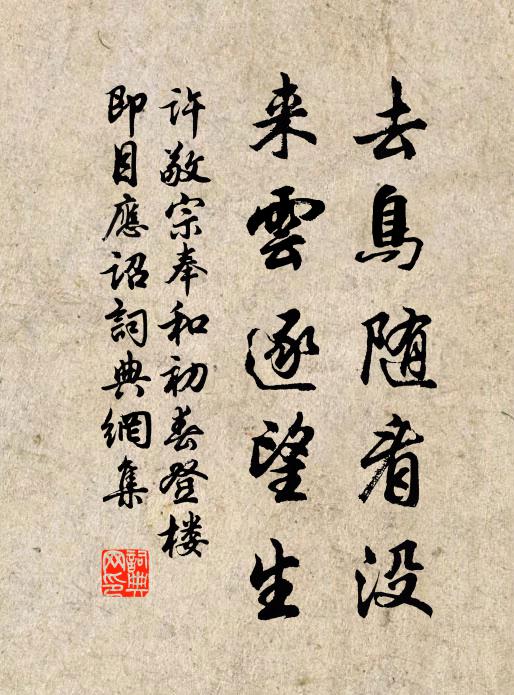 去鳥随看没
来雲逐望生
許敬宗奉和初春登楼
即目應詔詞典網集
詞典
网印